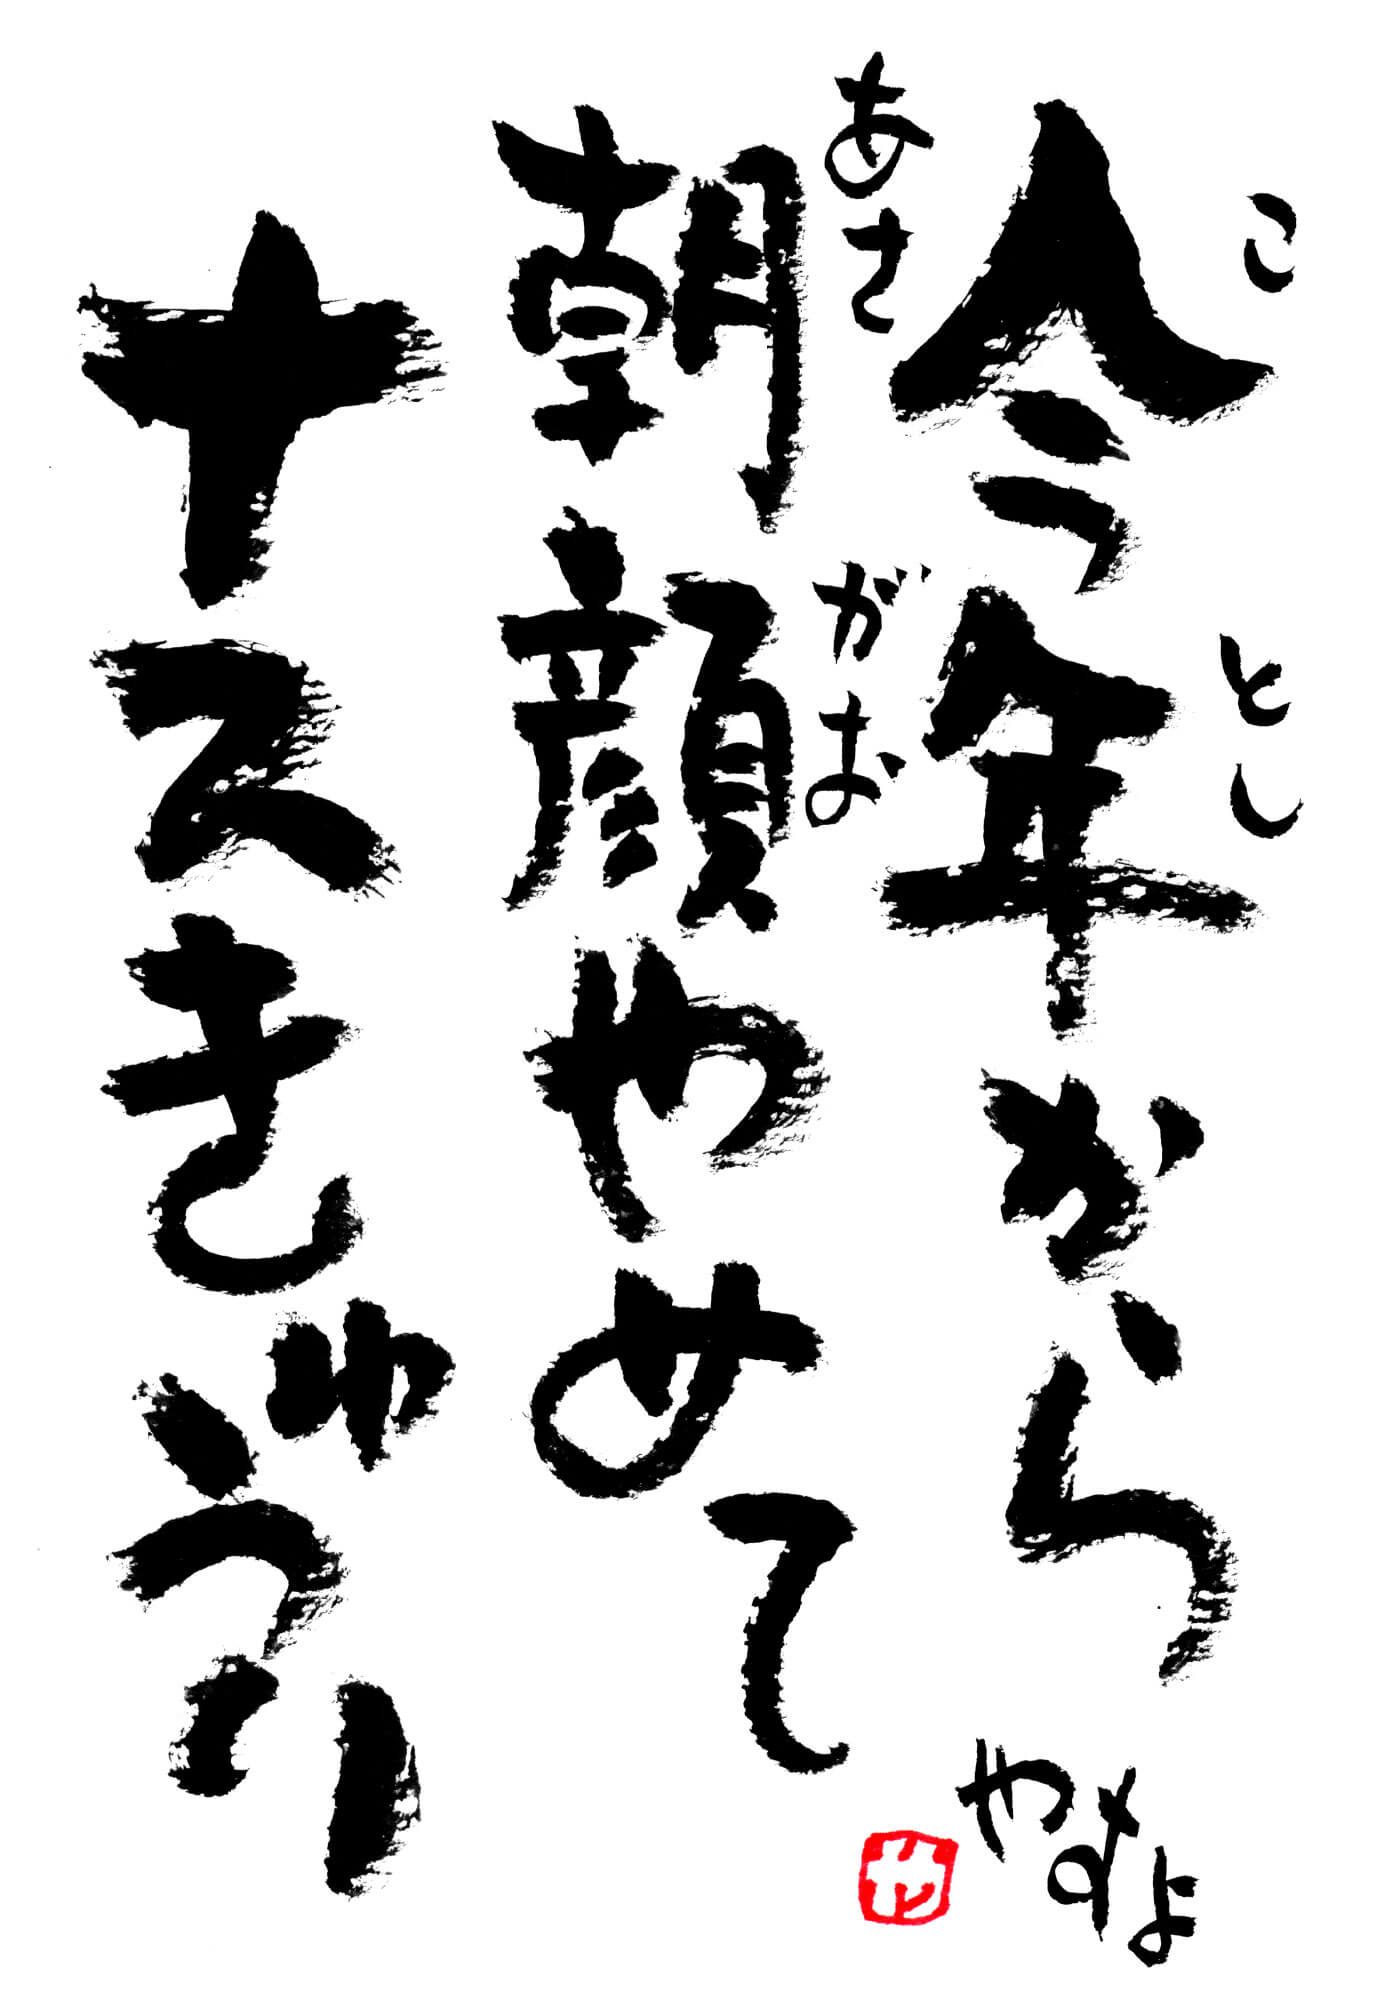 ことし
今年から
あさがお
朝顔やめて
ナスきゅうり
やすよ
や